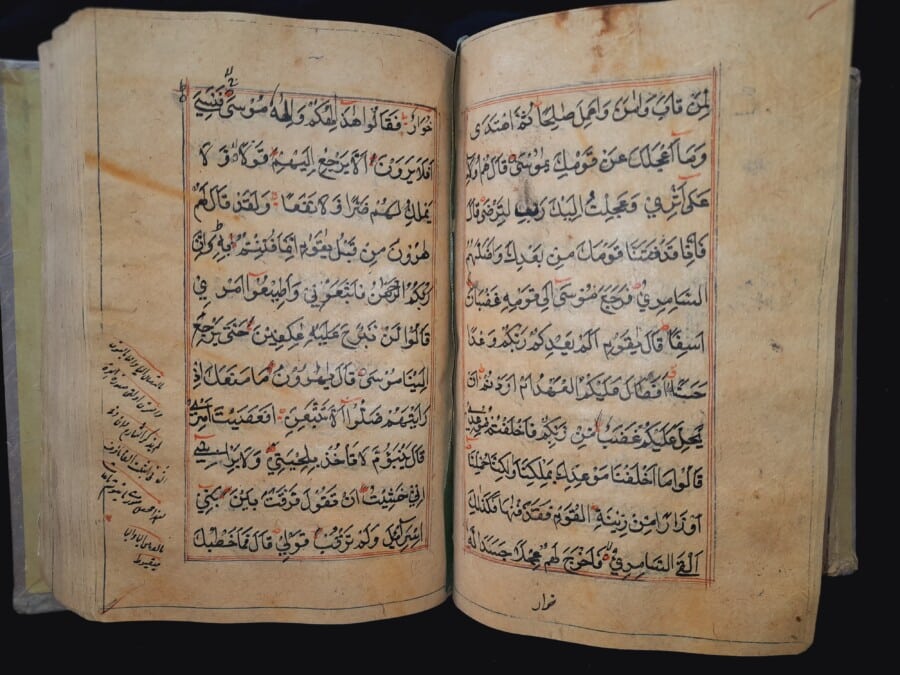 لِمَنْ تَابَ وَاٰمَنَ وَعَمِلَ صَالِحًا ثُمَّ اهْتَدٰى
وَمَا اَعْجَلَكَ عَنْ قَوْمِكَ يٰمُوسٰى قَالَ هُمْ اُولَاءِ
عَلٰى اَثَرِيْ وَعَجِلْتُ اِلَيْكَ رَبِّ لِتَرْضٰى قَالَ
فَاِنَّا قَدْ فَتَنَّا قَوْمَكَ مِنْ بَعْدِكَ وَاَضَلَّهُمُ
السَّامِرِيُّ فَرَجَعَ مُوسٰى اِلٰى قَوْمِهِ غَضْبَانَ
اَسِفًا قَالَ يٰقَوْمِ اَلَمْ يَعِدْكُمْ رَبُّكُمْ وَعْدًا
حَسَنًا اَفَطَالَ عَلَيْكُمُ الْعَهْدُ اَمْ اَرَدْتُمْ اَنْ
يَحِلَّ عَلَيْكُمْ غَضَبٌ مِنْ رَبِّكُمْ فَاَخْلَفْتُمْ مَوْعِدِيْ
قَالُوا مَا اَخْلَفْنَا مَوْعِدَكَ بِمَلْكِنَا وَلٰكِنَّا حُمِّلْنَا
اَوْزَارًا مِنْ زِيْنَةِ الْقَوْمِ فَقَذَفْنٰهَا فَكَذٰلِكَ
اَلْقَى السَّامِرِيُّ فَاَخْرَجَ لَهُمْ عِجْلًا جَسَدًا لَهُ
خوار
خُوَارٌ فَقَالُوا هٰذَا اِلٰهُكُمْ وَاِلٰهُ مُوسٰى فَنَسِيَ
اَفَلَا يَرَوْنَ اَلَّا يَرْجِعُ اِلَيْهِمْ قَوْلًا وَلَا
يَمْلِكُ لَهُمْ ضَرًّا وَلَا نَفْعًا وَلَقَدْ قَالَ لَهُمْ
هٰرُوْنُ مِنْ قَبْلُ يٰقَوْمِ اِنَّمَا فُتِنْتُمْ بِهِ وَاِنَّ
رَبَّكُمُ الرَّحْمٰنُ فَاتَّبِعُوْنِيْ وَاَطِيْعُوا اَمْرِيْ
قَالُوا لَنْ نَبْرَحَ عَلَيْهِ عٰكِفِيْنَ حَتّٰى يَرْجِعَ
اِلَيْنَا مُوسٰى قَالَ يٰهٰرُوْنُ مَا مَنَعَكَ اِذْ
رَاَيْتَهُمْ ضَلُّوا اَلَّا تَتَّبِعَنِ اَفَعَصَيْتَ اَمْرِيْ
قَالَ يَبْنَؤُمَّ لَا تَاْخُذْ بِلِحْيَتِيْ وَلَا بِرَاْسِيْ
اِنِّيْ خَشِيْتُ اَنْ تَقُوْلَ فَرَّقْتَ بَيْنَ بَنِيْ
اِسْرَآئِيْلَ وَلَمْ تَرْقُبْ قَوْلِيْ قَالَ فَمَا خَطْبُكَ